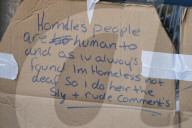 Homeles people
are human to
and as iv always
found Im Homeless not
deaf So I do heir the
Sly + rude comments